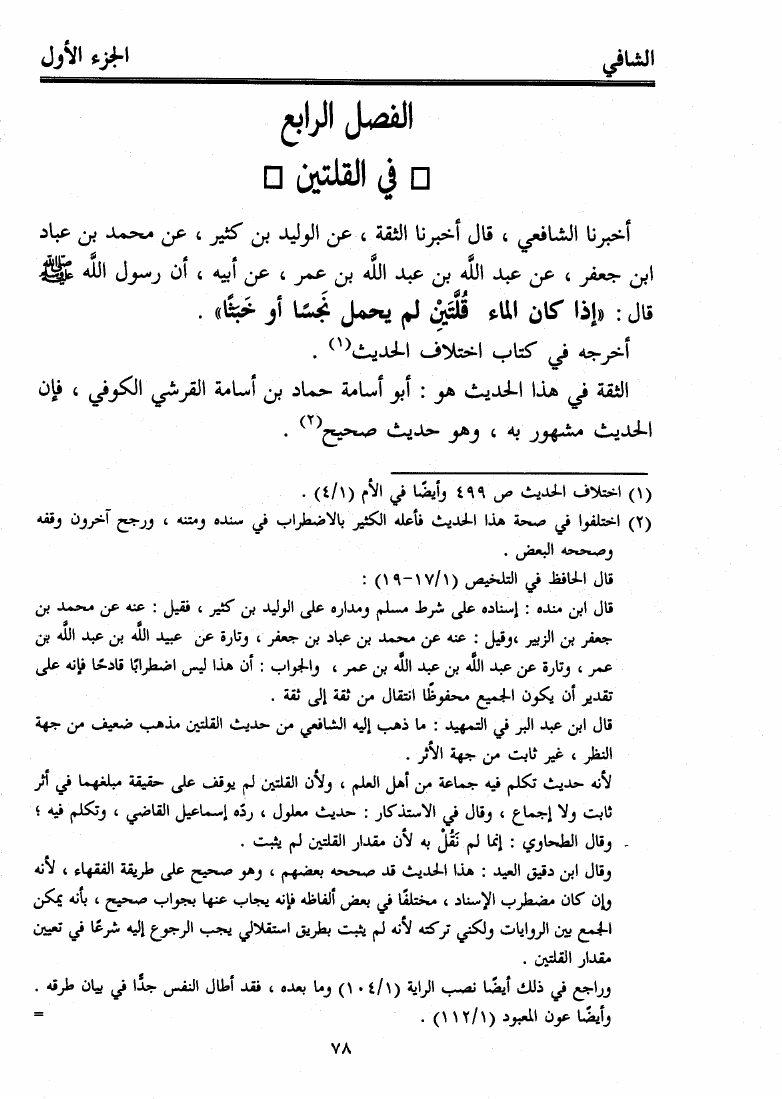 الشافي
الجزء الأول
الفصل الرابع
□ في القلتين □
أخبرنا الشافعي ، قال أخبرنا الثقة ، عن الوليد بن كثير ، عن محمد بن عباد
ابن جعفر ، عن عبد اللَّه بن عبد اللَّه بن عمر ، عن أبيه ، أن رسول اللَّه ﷺ
قال : «إذا كان الماء قُلَّتَيْنِ لم يحمل نَجَسًا أو خَبَثًا» .
أخرجه في كتاب اختلاف الحديث(١) .
الثقة في هذا الحديث هو : أبو أسامة حماد بن أسامة القرشي الكوفي ، فإن
الحديث مشهور به ، وهو حديث صحيح(٢) .
(١) اختلاف الحديث ص ٤٩٩ وأيضًا في الأم (٤/١) .
(٢) اختلفوا في صحة هذا الحديث فأعله الكثير بالاضطراب في سنده ومتنه ، ورجح آخرون وقفه
وصححه البعض .
قال الحافظ في التلخيص (١٧/١-١٩) :
قال ابن منده : إسناده على شرط مسلم ومداره على الوليد بن كثير ، فقيل : عنه عن محمد بن
جعفر بن الزبير ،وقيل : عنه عن محمد بن عباد بن جعفر ، وتارة عن عبيد اللَّه بن عبد اللَّه بن
عمر ، وتارة عن عبد اللَّه بن عبد اللَّه بن عمر ، والجواب : أن هذا ليس اضطرابًا قادحًا فإنه على
تقدير أن يكون الجميع محفوظًا انتقال من ثقة إلى ثقة .
قال ابن عبد البر في التمهيد : ما ذهب إليه الشافعي من حديث القلتين مذهب ضعيف من جهة
النظر ، غير ثابت من جهة الأثر .
لأنه حديث تكلم فيه جماعة من أهل العلم ، ولأن القلتين لم يوقف على حقيقة مبلغهما في أثر
ثابت ولا إجماع ، وقال في الاستذكار : حديث معلول ، ردّه إسماعيل القاضي ، وتكلم فيه ؛
وقال الطحاوي : إنما لم نَقُلْ به لأن مقدار القلتين لم يثبت .
وقال ابن دقيق العيد : هذا الحديث قد صححه بعضهم ، وهو صحيح على طريقة الفقهاء ، لأنه
وإن كان مضطرب الإسناد ، مختلفًا في بعض ألفاظه فإنه يجاب عنها بجواب صحيح ، بأنه يمكن
الجمع بين الروايات ولكني تركته لأنه لم يثبت بطريق استقلالي يجب الرجوع إليه شرعًا في تعيين
مقدار القلتين .
وراجع في ذلك أيضًا نصب الراية (١٠٤/١) وما بعده ، فقد أطال النفس جدًّا في بيان طرقه .
وأيضًا عون المعبود (١١٢/١) . =
٧٨